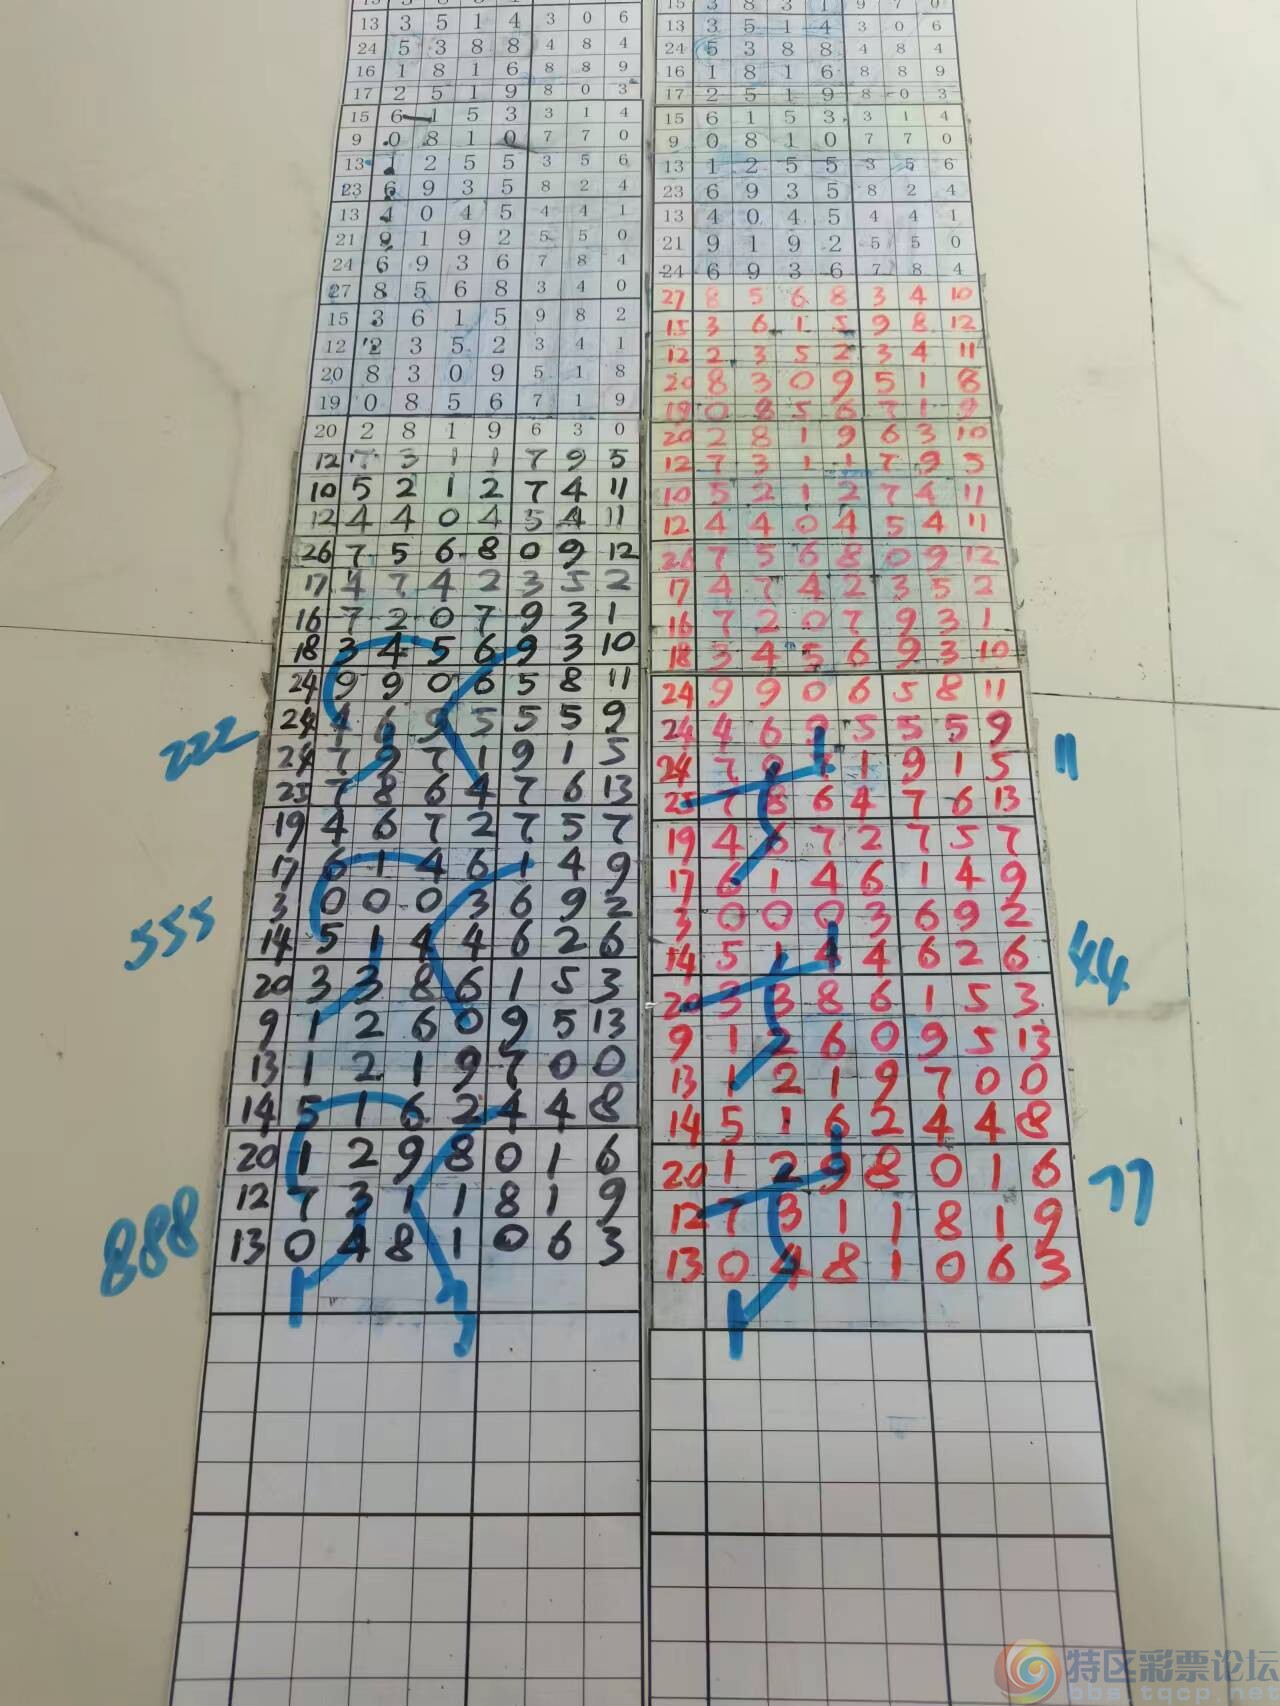 13 3 5 1 4 3 0 6
24 5 3 8 8 4 8 4
16 1 8 1 6 8 8 9
17 2 5 1 9 8 0 3
15 6 1 5 3 3 1 4
9 0 8 1 0 7 7 0
13 1 2 5 5 3 5 6
23 6 9 3 5 8 2 4
13 4 0 4 5 4 4 1
21 9 1 9 2 5 5 0
24 6 9 3 6 7 8 4
27 8 5 6 8 3 4 0
15 3 6 1 5 9 8 2
12 2 3 5 2 3 4 1
20 8 3 0 9 5 1 8
19 0 8 5 6 7 1 9
20 2 8 1 9 6 3 0
12 7 3 1 1 7 9 5
10 5 2 1 2 7 4 11
12 4 4 0 4 5 4 11
26 7 5 6 8 0 9 12
17 4 7 4 2 3 5 2
16 7 2 0 7 9 3 1
18 3 4 5 6 9 3 10
24 9 9 0 6 5 8 11
24 4 6 9 5 5 5 9
222
24 7 9 7 1 9 1 5
25 7 8 6 4 7 6 13
19 4 6 7 2 7 5 7
17 6 1 4 6 1 4 9
3 0 0 0 3 6 9 2
555
14 5 1 4 4 6 2 6
20 3 3 8 6 1 5 3
9 1 2 6 0 9 5 13
13 1 2 1 9 7 0 0
14 5 1 6 2 4 4 8
20 1 2 9 8 0 1 6
12 7 3 1 1 8 1 9
888
13 0 4 8 1 0 6 3
15 3 8 3 1 9 7 0
13 3 5 1 4 3 0 6
24 5 3 8 8 4 8 4
16 1 8 1 6 8 8 9
17 2 5 1 9 8 0 3
15 6 1 5 3 3 1 4
9 0 8 1 0 7 7 0
13 1 2 5 5 3 5 6
23 6 9 3 5 8 2 4
13 4 0 4 5 4 4 1
21 9 1 9 2 5 5 0
24 6 9 3 6 7 8 4
27 8 5 6 8 3 4 10
15 3 6 1 5 9 8 12
12 2 3 5 2 3 4 11
20 8 3 0 9 5 1 8
19 0 8 5 6 7 1 9
20 2 8 1 9 6 3 10
12 7 3 1 1 7 9 5
10 5 2 1 2 7 4 11
12 4 4 0 4 5 4 11
26 7 5 6 8 0 9 12
17 4 7 4 2 3 5 2
16 7 2 0 7 9 3 1
18 3 4 5 6 9 3 10
24 9 9 0 6 5 8 11
24 4 6 9 5 5 5 9
24 7 9 7 1 9 1 5
11
25 7 8 6 4 7 6 13
19 4 6 7 2 7 5 7
17 6 1 4 6 1 4 9
3 0 0 0 3 6 9 2
14 5 1 4 4 6 2 6
44
20 3 3 8 6 1 5 3
9 1 2 6 0 9 5 13
13 1 2 1 9 7 0 0
14 5 1 6 2 4 4 8
20 1 2 9 8 0 1 6
77
12 7 3 1 1 8 1 9
13 0 4 8 1 0 6 3
特区彩票论坛
bbs.tqcp.net